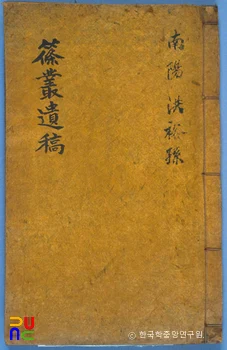 南陽 洪裕孫
篠叢遺稿
ⓒ한국학중앙연구원